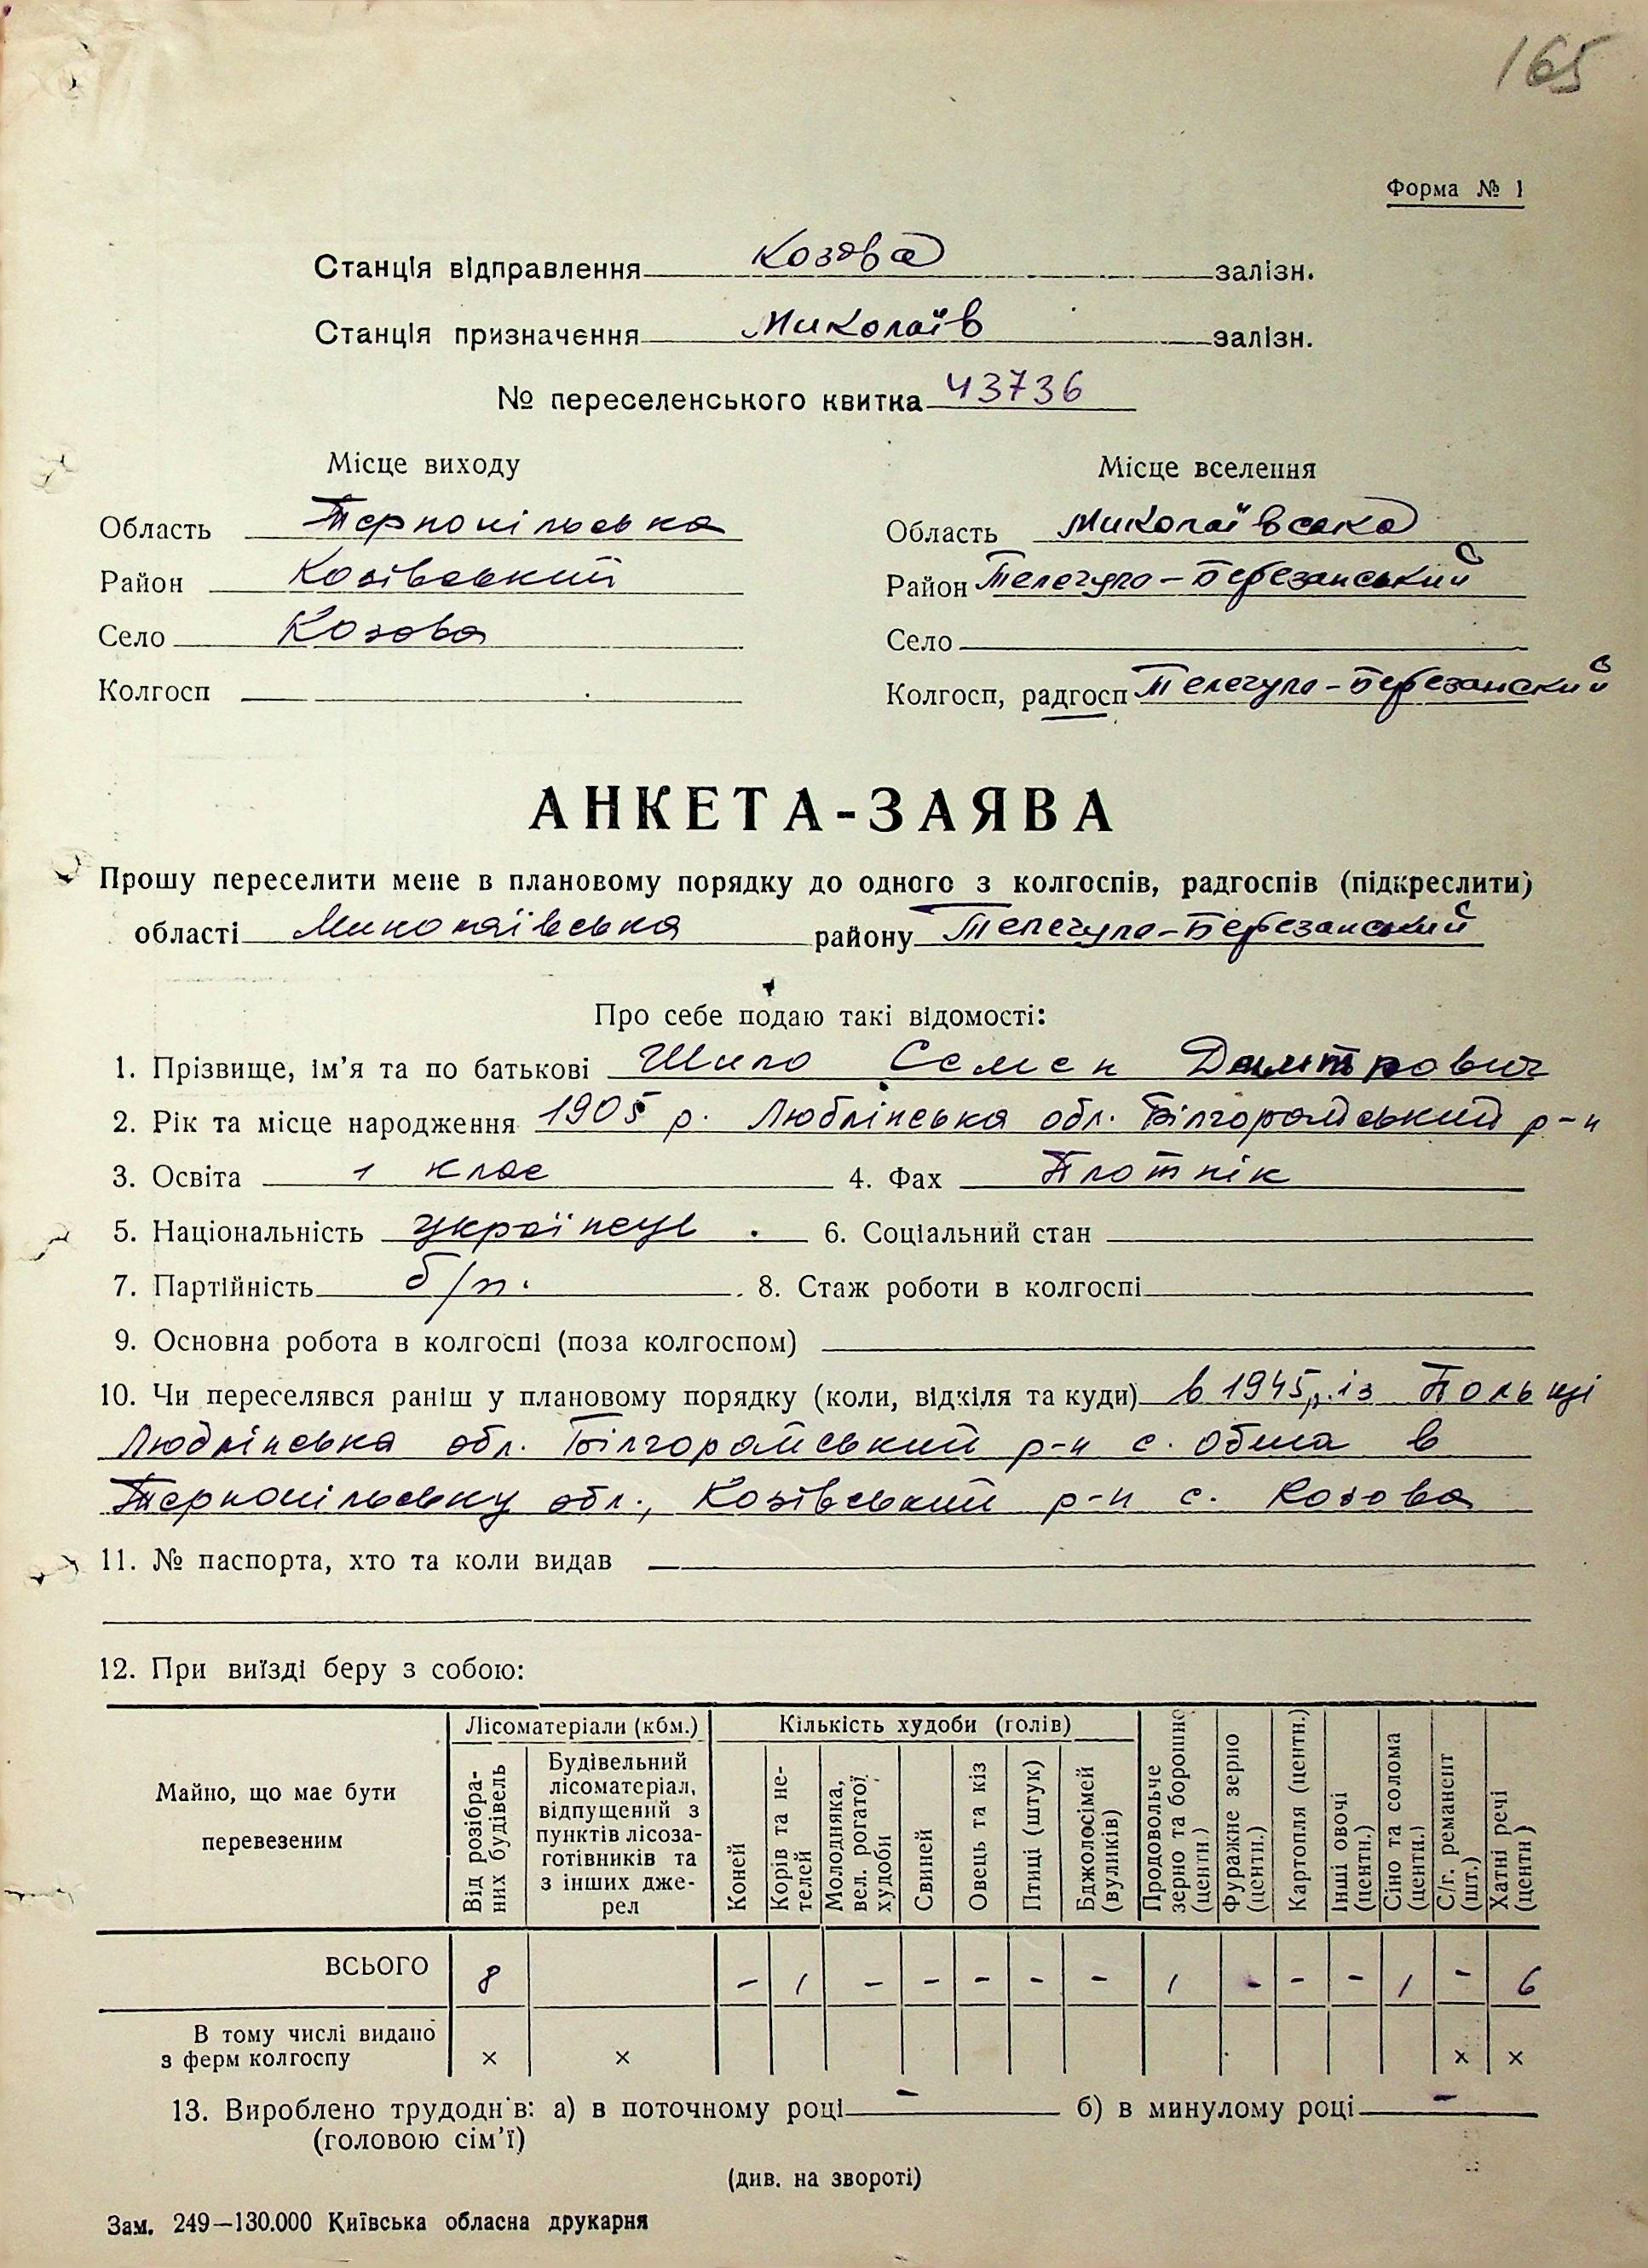 165
Форма № 1
Станція відправлення Козова залізн.
Станція призначення Миколаїв залізн.
№ переселенського квитка 43736
Місце виходу Місце вселення
Область Тернопільська Область Миколаївська
Район Козівський Район Телегуло-Березанський
Село Козова Село
Колгосп — Колгосп, радгосп Телегуло-Березанский
АНКЕТА-ЗАЯВА
Прошу переселити мене в плановому порядку до одного з колгоспів, радгоспів (підкреслити)
області Миколаївська району Телегуло-Березанский
Про себе подаю такі відомості:
1. Прізвище, ім'я та по батькові Шило Семен Дмитрович
2. Рік та місце народження 1905 р. Люблінська обл. Білгорайський р-н
3. Освіта 1 клас 4. Фах Плотнік
5. Національність українець 6. Соціальний стан
7. Партійність б/п. 8. Стаж роботи в колгоспі
9. Основна робота в колгоспі (поза колгоспом)
10. Чи переселявся раніш у плановому порядку (коли, відкіля та куди) в 1945 р. із Польщі
Люблінська обл. Білгорайський р-н с. Обша в
Тернопільську обл., Козівський р-н с. Козова
11. № паспорта, хто та коли видав
12. При виїзді беру з собою:
Майно, що має бути перевезеним
Лісоматеріали (кбм.)
Від розібраних будівель
Будівельний
лісоматеріал,
відпущений з
пунктів лісоза-
готівників та
з інших дже-
рел
Кількість худоби (голів)
Коней
Корів та не-
телей
Молодняка,
вел. рогатої
худоби
Свиней
Овець та кіз
Птиці (штук)
Бджолосімей
(вуликів)
Продовольче
зерно та борошно
(центн.)
Фуражне зерно
(центн.)
Картопля (центн.)
Інші овочі
(центн.)
Сіно та солома
(центн.)
С/г. реманент
(шт.)
Хатні речі
(центн)
ВСЬОГО 8 - 1 - - - - - 1 - - - 1 - 6
В тому числі видано
з ферм колгоспу × × × ×
13. Вироблено трудодн'в: а) в поточному році - б) в минулому році -
(головою сім'ї)
(див. на звороті)
Зам. 249—130.000 Київська обласна друкарня